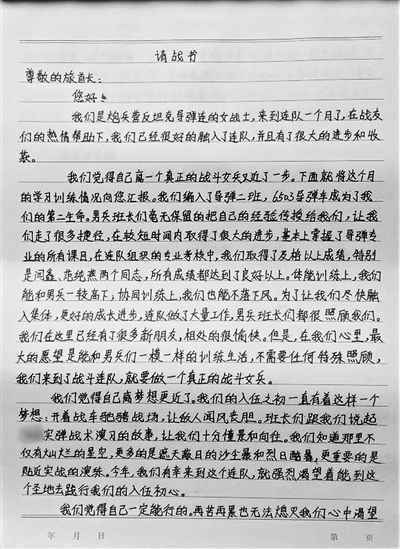 请战书
尊敬的旅首长：
您好！
我们是炮兵营反坦克导弹连的女战士，来到连队一个月了，在战友
们的热情帮助下，我们已经很好的融入了连队，并且有了很大的进步和收
获。
我们觉得自己离一个真正的战斗女兵又近了一步。下面就将这个月
的学习训练情况向您汇报。我们编入了导弹二班，6503导弹车成为了我
们的第二生命。男兵班长们毫无保留的把自己的经验传授给我们，让我
们走了很多捷径，在较短时间内取得了很大的进步，基本上掌握了导弹专
业的所有课目，在连队组织的专业考核中，我们取得了及格以上成绩，特别
是闫鑫、范纯燕两个同志，所有成绩都达到了良好以上。体能训练上，我们
能和男兵一较高下，协同训练上，我们也能不落下风。为了让我们尽快融
入集体，更好的成长进步，连队做了大量工作，男兵班长们都很照顾我们。
我们在这里已经有了很多新朋友，相处的很愉快。但是，在我们心里，最
大的愿望是能和男兵们一模一样的训练生活，不需要任何特殊照顾，
我们来到了战斗连队，就要做一个真正的战斗女兵。
我们觉得自己离梦想更近了。我们的入伍之初一直有着这样一个
梦想：开着战车驰骋战场，让敌人闻风丧胆。班长们跟我们说起
实弹战术演习的故事，让我们十分憧景和向往。我们知道那里不
仅有灿烂的星空，更多的是遮天蔽日的沙尘暴和烈日酷暑，更重要的是
贴近实战的演练。今年，我们有幸来到这个连队，就强烈渴望着能到这
个圣地去践行我们的入伍初心。
我们觉得自己一定能行的。再苦再累也无法熄灭我们心中渴望
年 月 日 第 页